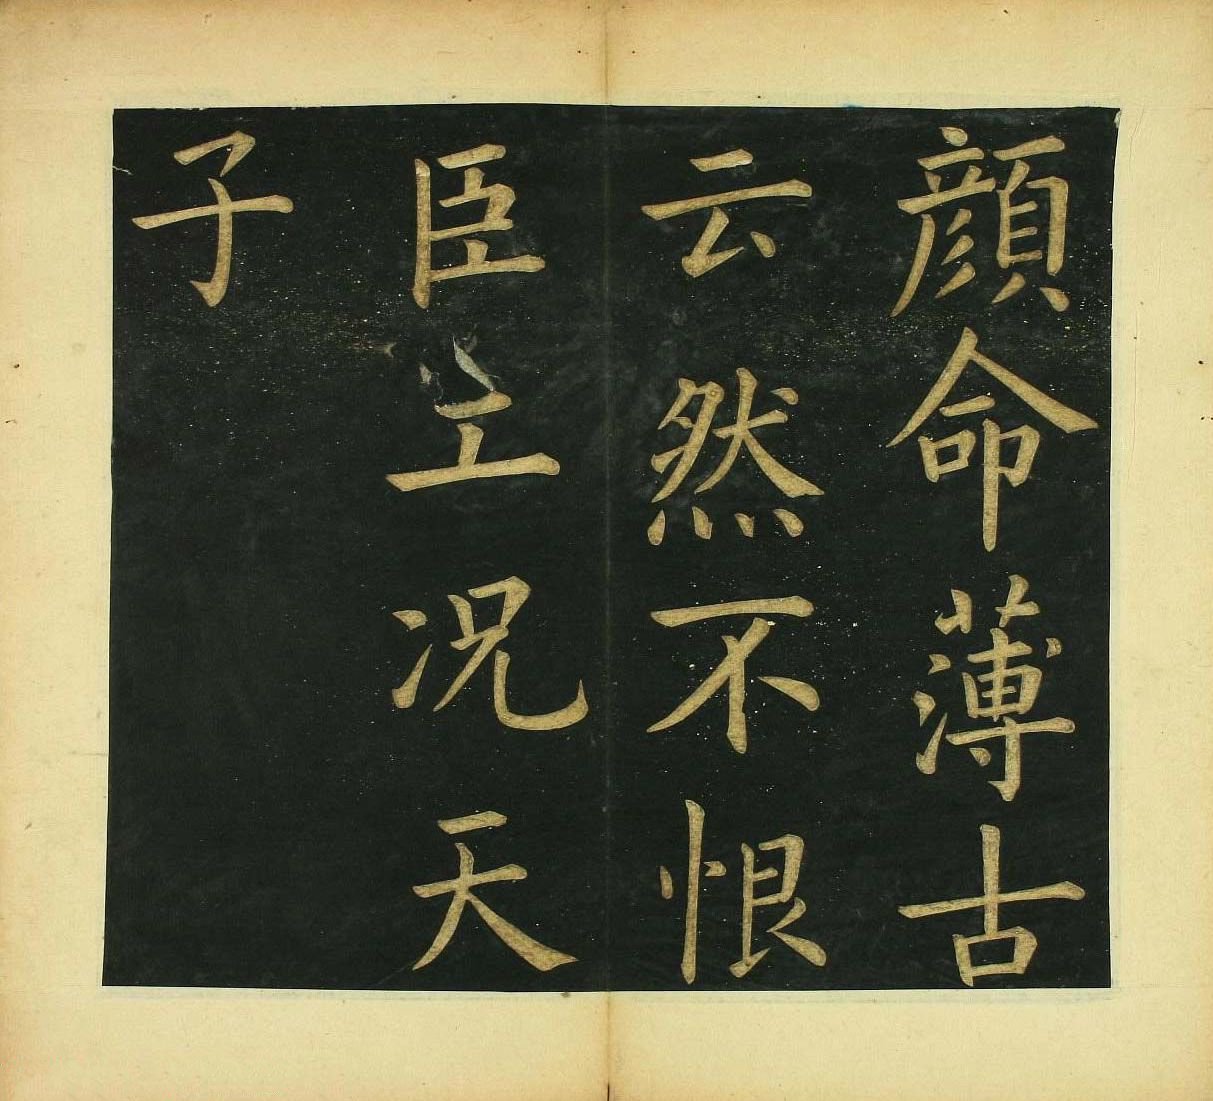 顔命薄古
云然不恨
臣工况天
子